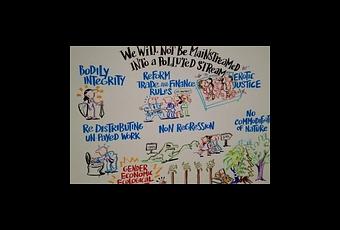 We Will Not Be Mainstreamed
Into a Polluted Stream
BODILY
INTEGRITY
REFORM
TRADE AND FINANCE
RULES
EROTIC
JUSTICE
RE DISTRIBUTING
UN PAYED WORK
NON REGRESSION
NO
COMMODIFICATION
OF NATURE
GENDER
ECONOMIC
ECOLOGICAL